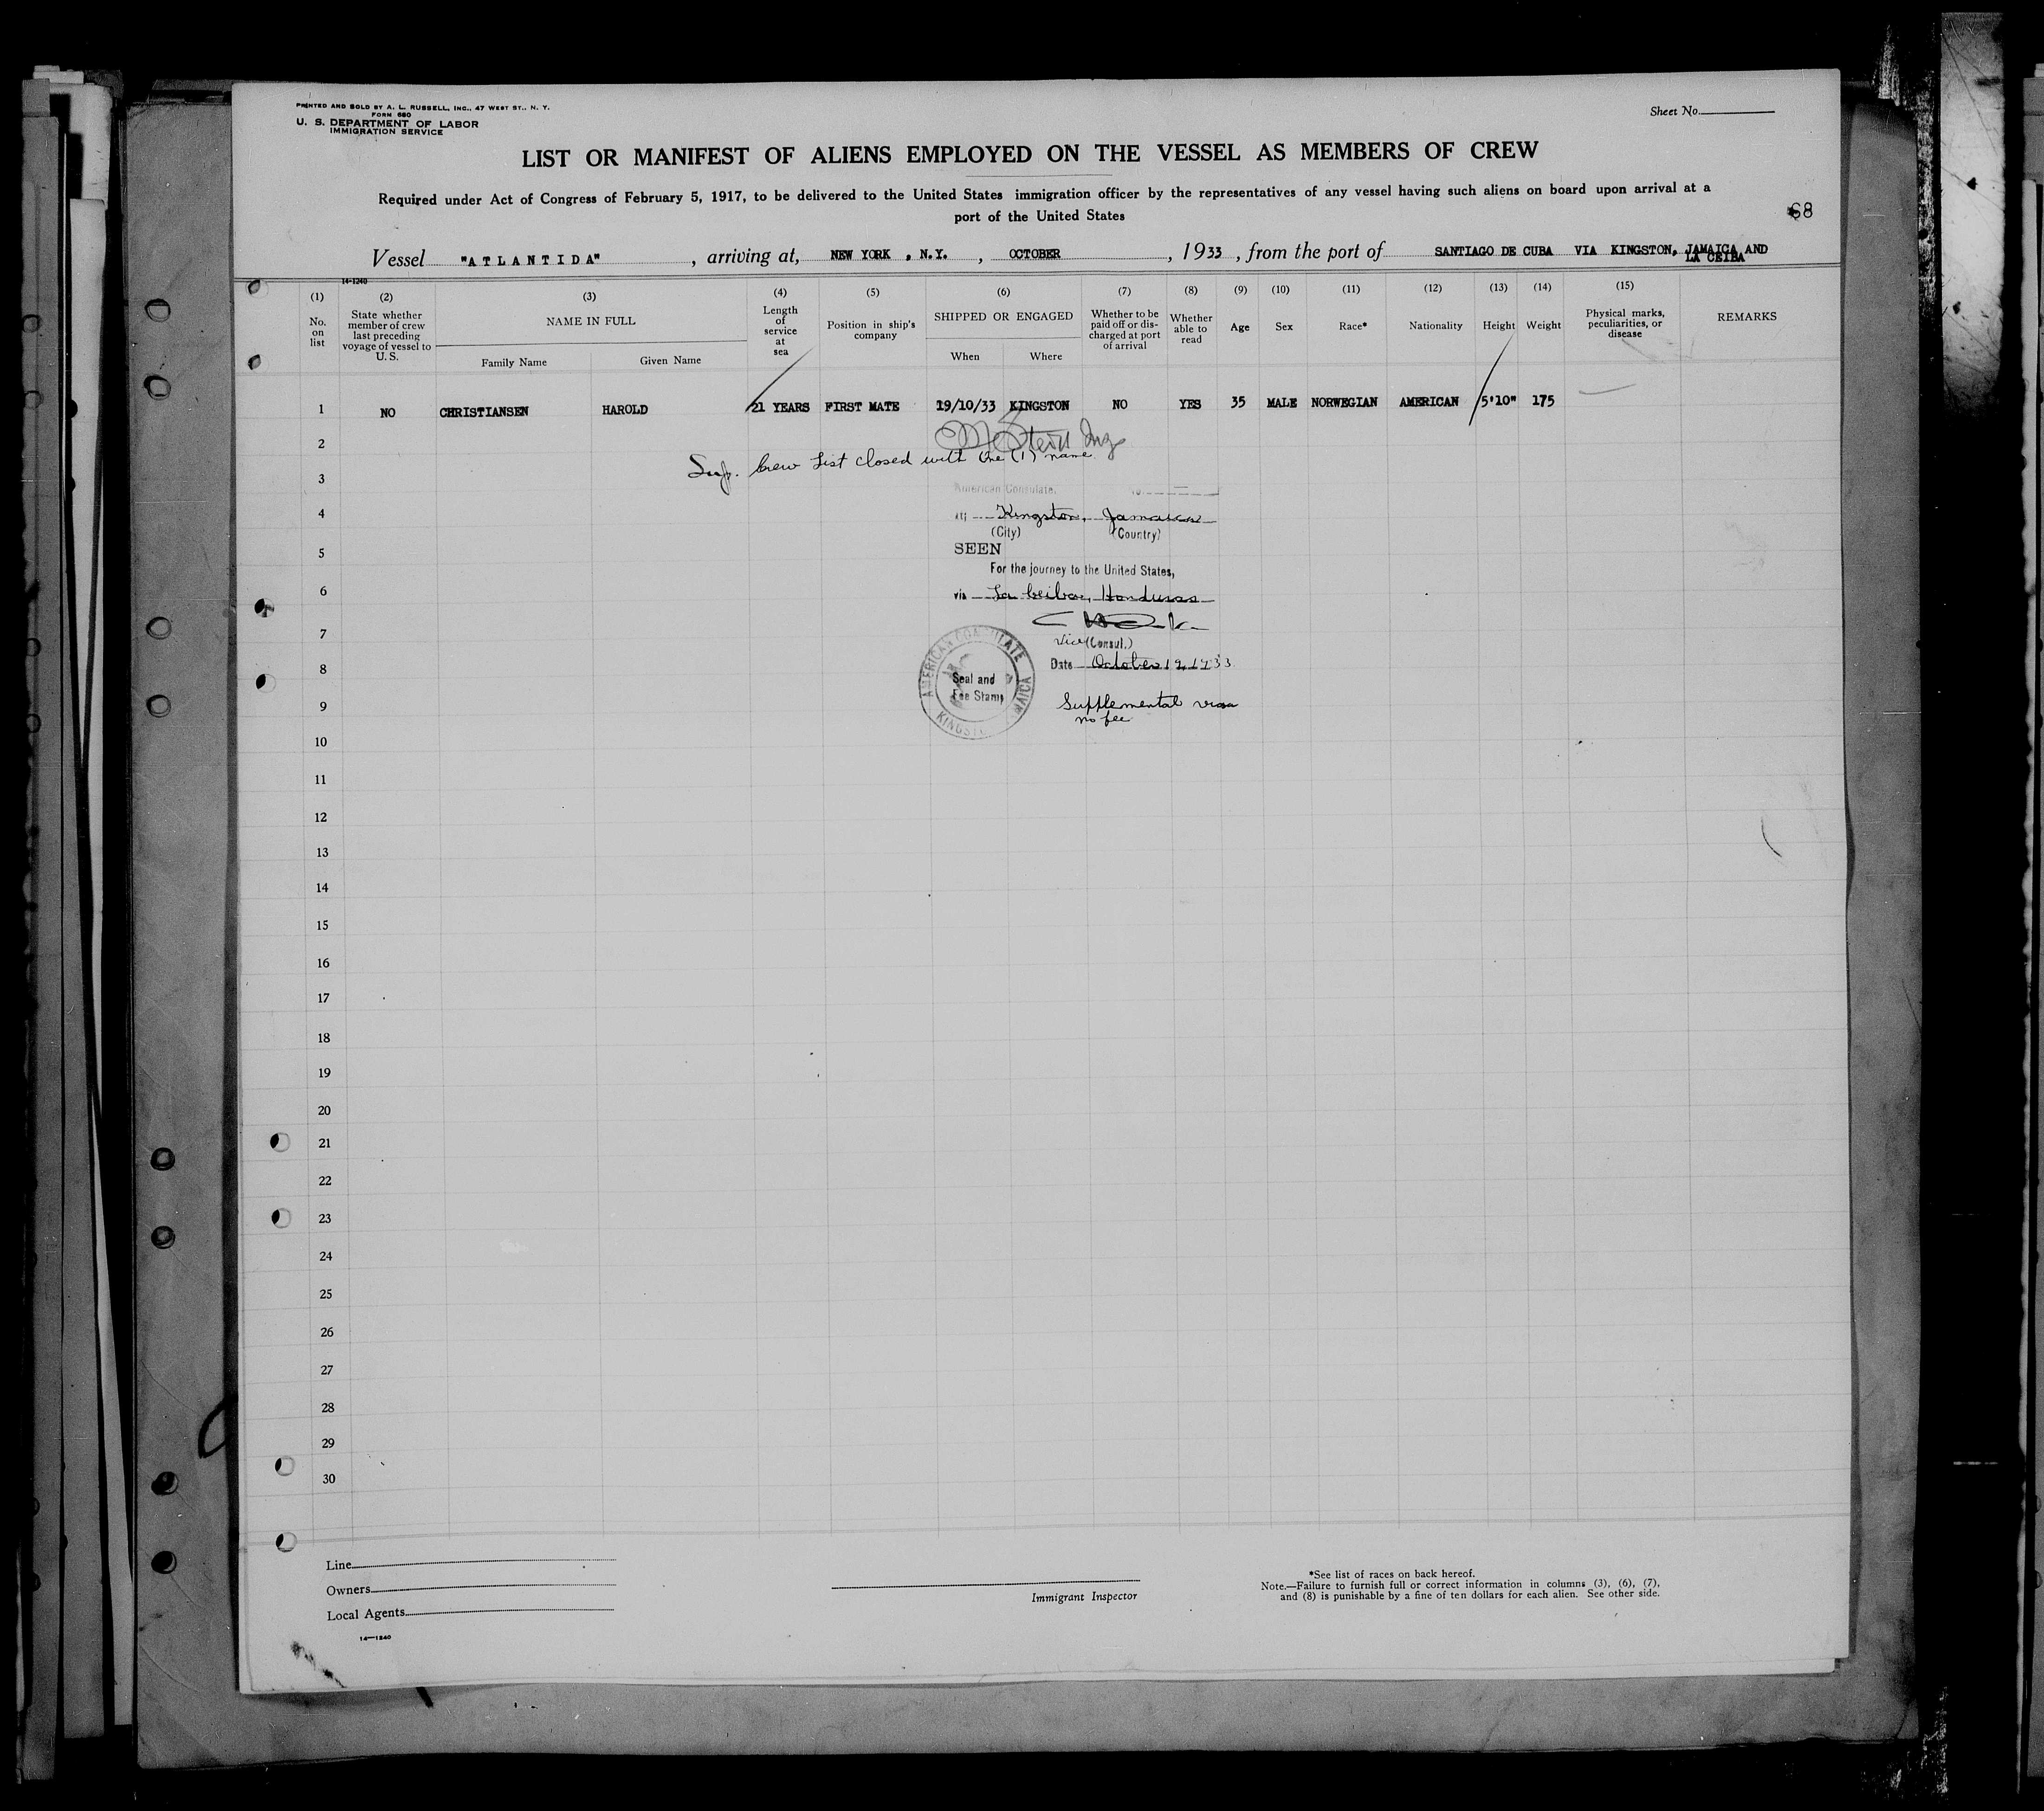 PRINTED AND SOLD BY A. L. RUSSELL, INC., 47 WEST ST., N. Y.
FORM 680
U. S. DEPARTMENT OF LABOR
IMMIGRATION SERVICE
Sheet No.
LIST OR MANIFEST OF ALIENS EMPLOYED ON THE VESSEL AS MEMBERS OF CREW
Required under Act of Congress of February 5, 1917, to be delivered to the United States immigration officer by the representatives of any vessel having such aliens on board upon arrival at a
port of the United States
68
Vessel "ATLANTIDA", arriving at, NEW YORK, N.Y., OCTOBER, 1933, from the port of SANTIAGO DE CUBA VIA KINGSTON, JAMAICA AND
LA CEIBA
14-1240
(1) No. on list
(2) State whether member of crew last preceding voyage of vessel to U. S.
(3) NAME IN FULL
Family Name Given Name
(4) Length of service at sea
(5) Position in ship's company
(6) SHIPPED OR ENGAGED
When Where
(7) Whether to be paid off or discharged at port of arrival
(8) Whether able to read
(9) Age
(10) Sex
(11) Race*
(12) Nationality
(13) Height
(14) Weight
(15) Physical marks, peculiarities, or disease
REMARKS
1 NO CHRISTIANSEN HAROLD 21 YEARS FIRST MATE 19/10/33 KINGSTON NO YES 35 MALE NORWEGIAN AMERICAN 5'10" 175
2
Sup. Crew List closed with One (1) name
3
American Consulate,
4
at Kingston, Jamaica
(City) (Country)
5
SEEN
For the journey to the United States,
6
via La Ceiba, Honduras
7
Vice (Consul.)
8
Date October 19, 1933
AMERICAN CONSULATE KINGSTON JAMAICA
Seal and
Fee Stamp
9
Supplemental visa
no fee
10
11
12
13
14
15
16
17
18
19
20
21
22
23
24
25
26
27
28
29
30
Line
Owners
Local Agents
14—1240
Immigrant Inspector
*See list of races on back hereof.
Note.—Failure to furnish full or correct information in columns (3), (6), (7),
and (8) is punishable by a fine of ten dollars for each alien. See other side.